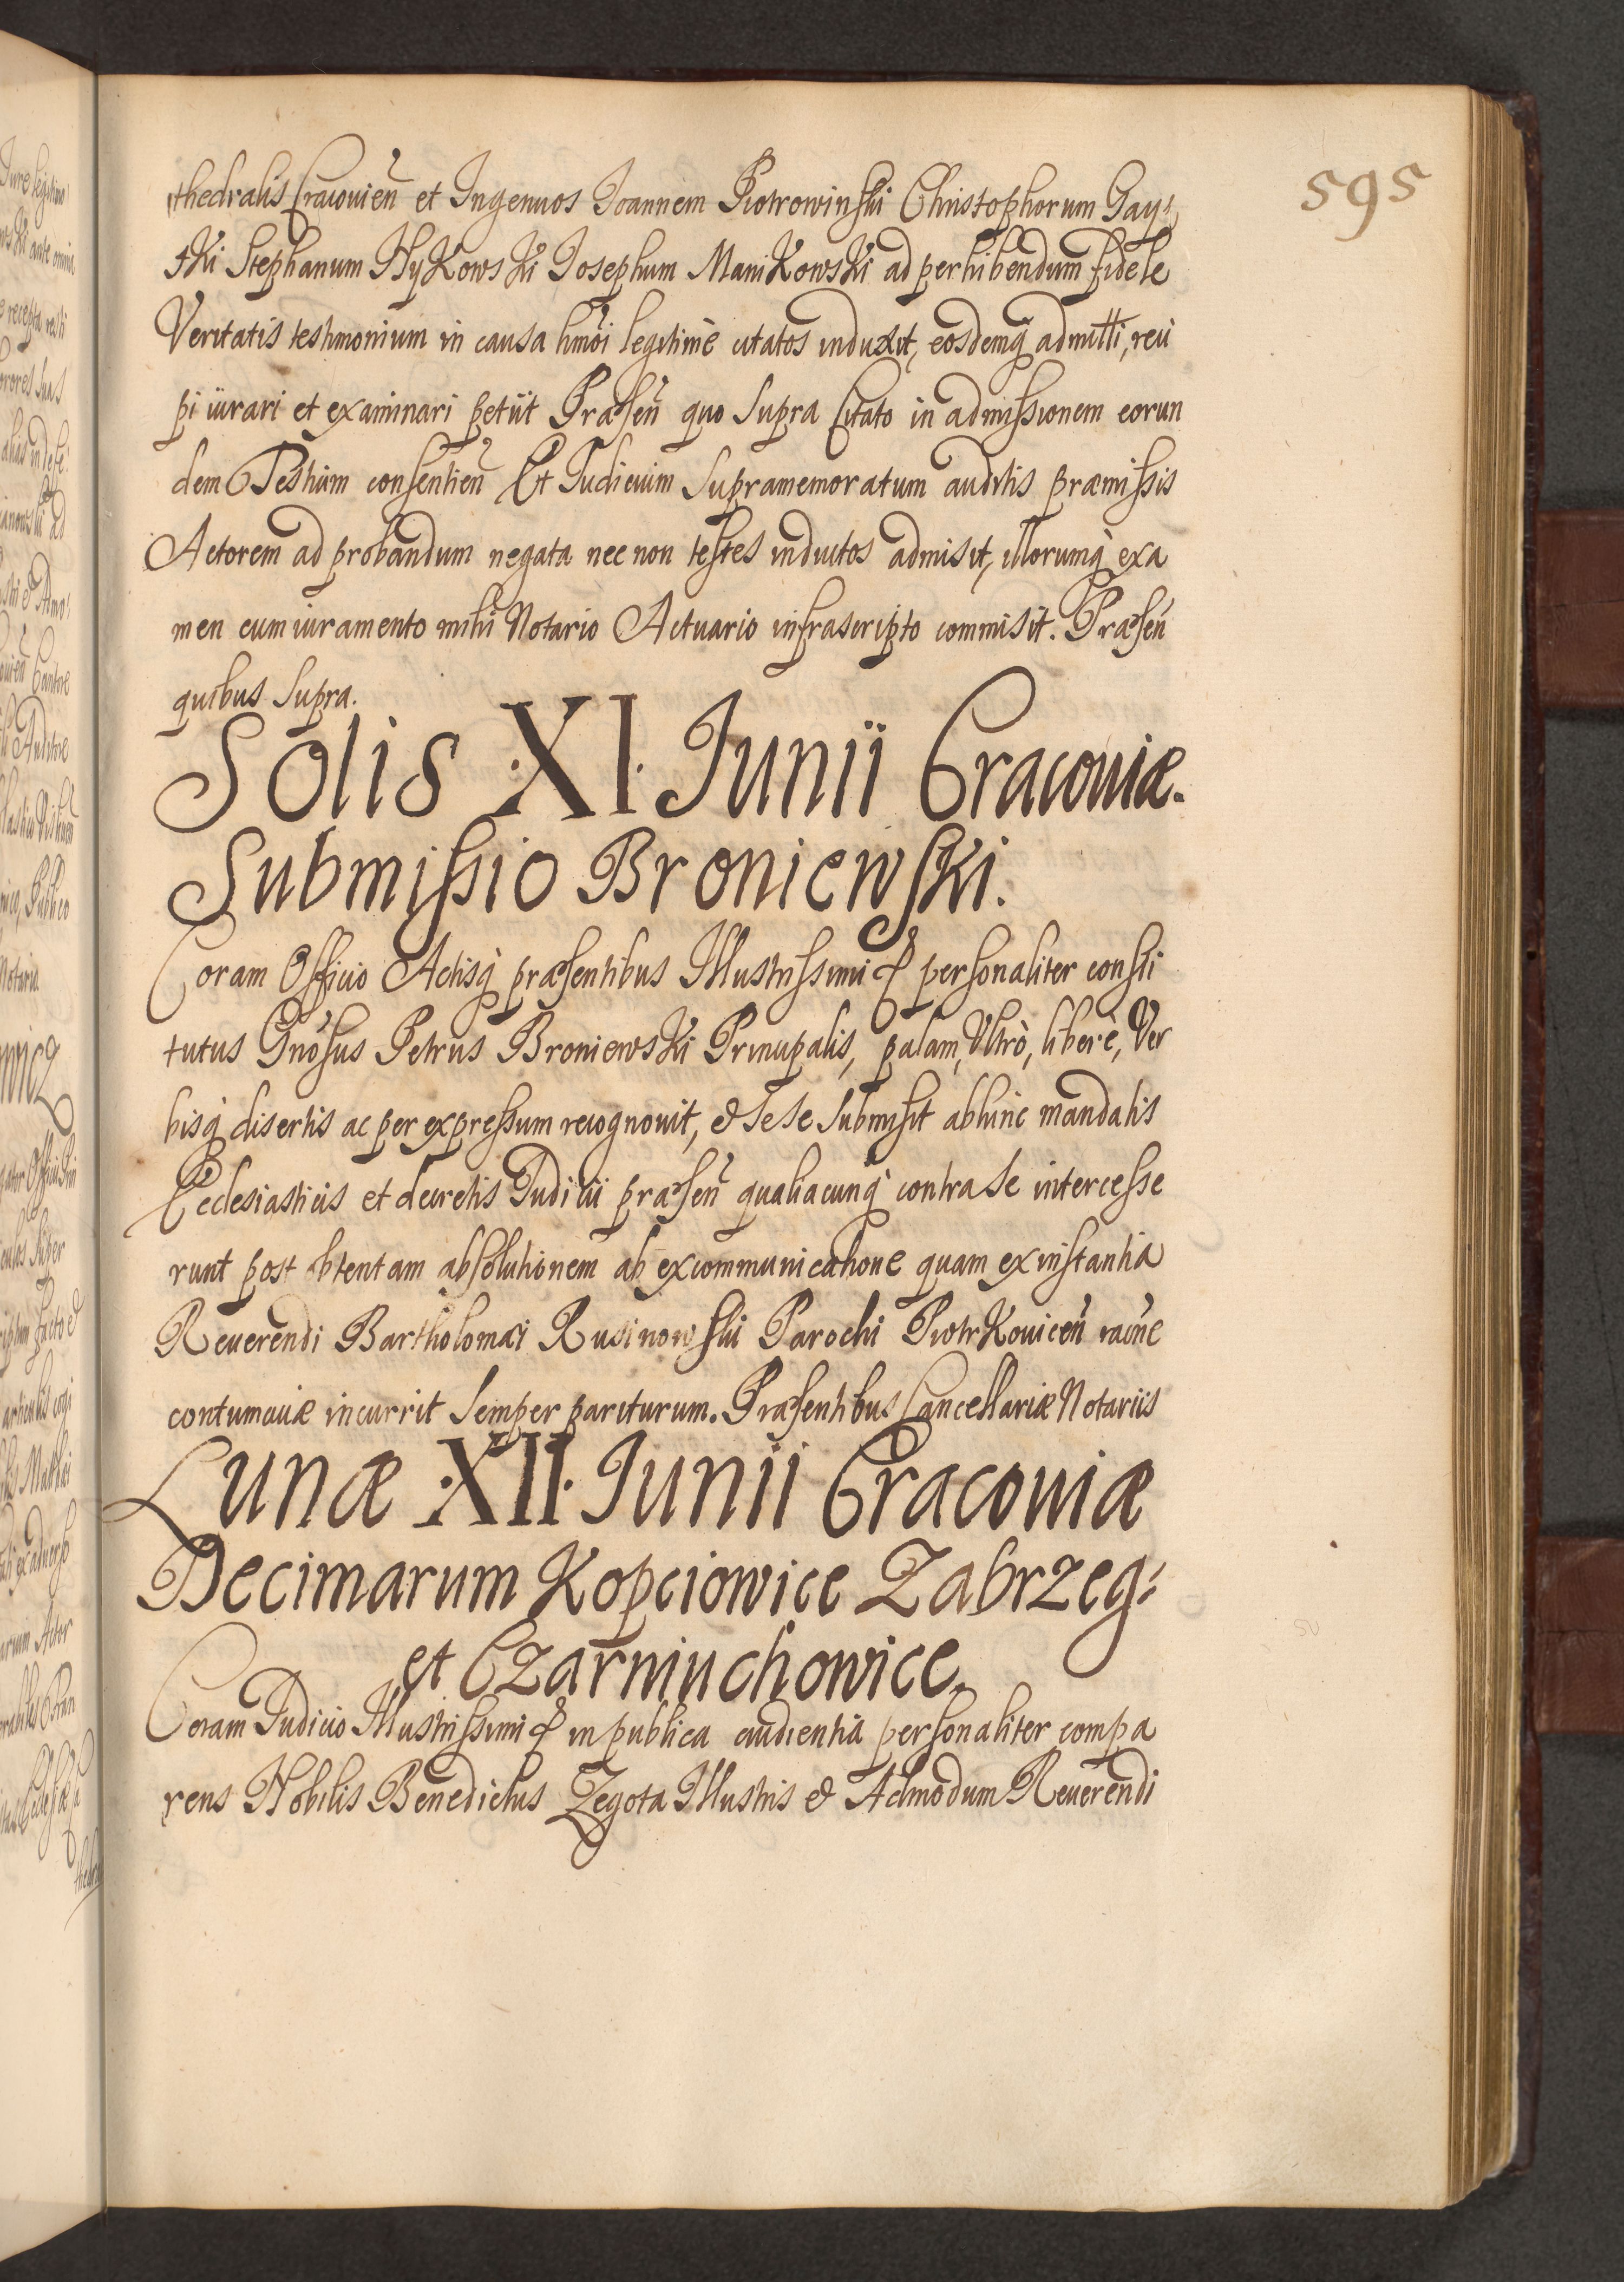 595
thedralis Cracouien̄ et Ingenuos Joannem Piotrowinski Christophorum Gay⸗
tKi Stephanum HyKowsKi Josephum ManiKowsKi ad perhibendum fidele
Veritatis testimonium in causa hm̄oi legitimè citatos induxit, eosdemq̀ admitti, reci
pi iurari et examinari petiit Præsen̄ quo supra Citato in admissionem eorun
dem Testium consentien̄ Et Judicium Supramemoratum auditis præmissis
Actorem ad probandum negata nec non testes inductos admisit, illorumq̀ exa
men cum iuramento mihi Notario Actuario infrascripto commisit. Præsen̄
quibus Supra.
Solis ·XI· Junii Cracouiæ.
Submissio Broniewski.
Coram Officio Actisq̀ præsentibus Illustrissimi & personaliter consti
tutus Gn̄osus Petrus BroniewsKi Principalis, palam, Vltrò, liberè, Ver
bisq̀ disertis ac per expressum recognouit, & sese submisit abhinc mandatis
Ecclesiasticis et decretis Judicii præsen̄ qualiacunq̀ contra se intercesse
runt post obtentam absolutionem ab excommunicatione quam ex instantia
Reuerendi Bartholomæi Rusinowski Parochi PiotrKouicen̄ rao̅ne
contumaciæ incurrit semper pariturum. Præsentibus Cancellariæ Notariis
Lunæ ·XII· Junii Cracouiæ
Decimarum Kopciowice Zabrzeg⸗
et Czarniuchowice.
Coram Judicio Illustrissimi & in publica audientia personaliter compa
rens Nobilis Benedictus Zegota Illustris & Admodum Reuerendi